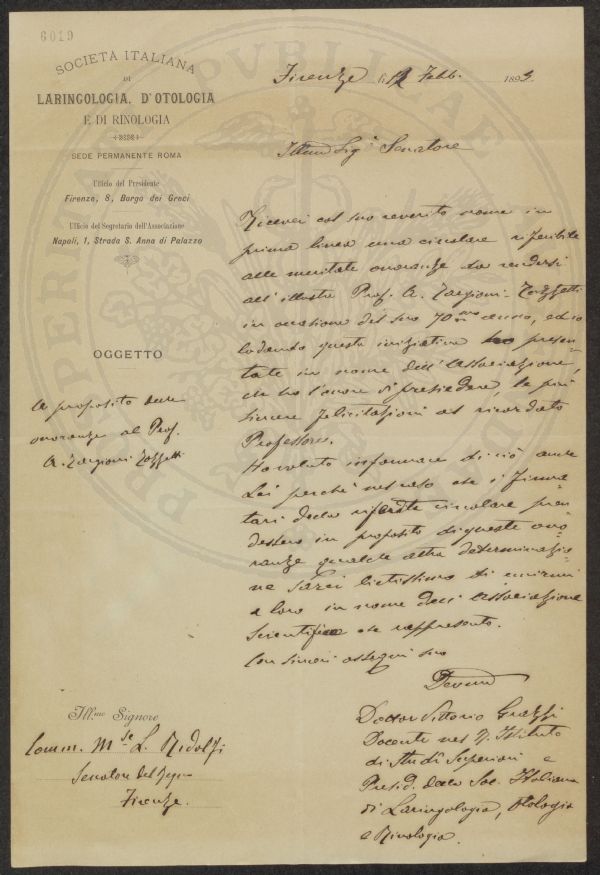 6019
SOCIETÀ ITALIANA
DI
LARINGOLOGIA, D'OTOLOGIA
E DI RINOLOGIA
SEDE PERMANENTE ROMA
Ufficio del Presidente
Firenze, 8, Borgo dei Greci
Ufficio del Segretario dell'Associazione
Napoli, 1, Strada S. Anna di Palazzo
OGGETTO
A proposito delle
onoranze al Prof.
A. Targioni Tozzetti
Firenze li 12 Febb. 1893
Illmo Sigr Senatore
Ricevei col suo reverito nome in
prima linea una circolare riferibile
alle meritate onoranze da rendersi
all'illustre Prof. A. Targioni-Tozzetti
in occasione del suo 70mo anno, ed io
lodando questa iniziativa ho presen-
tate in nome dell'Associazione,
che ho l'onore di presiedere, le più
sincere felicitazioni al ricordato
Professore.
Ho voluto informare di ciò anche
Lei perchè nel caso che i firma-
tari della riferita circolare pren-
dessero in proposito di queste ono-
ranze qualche altra determinazio-
ne sarei lietissimo di unirmi
a loro in nome dell'Associazione
Scientifica che rappresento.
Con sinceri ossequi suo
Devmo
Dottor Vittorio Grazzi
Docente nel R. Istituto
di Studi Superiori e
Presid. della Soc. Italiana
di Laringologia, Otologia
e Rinologia.
Ill.mo Signore
Comm. Mse L. Ridolfi
Senatore del Regno
Firenze.